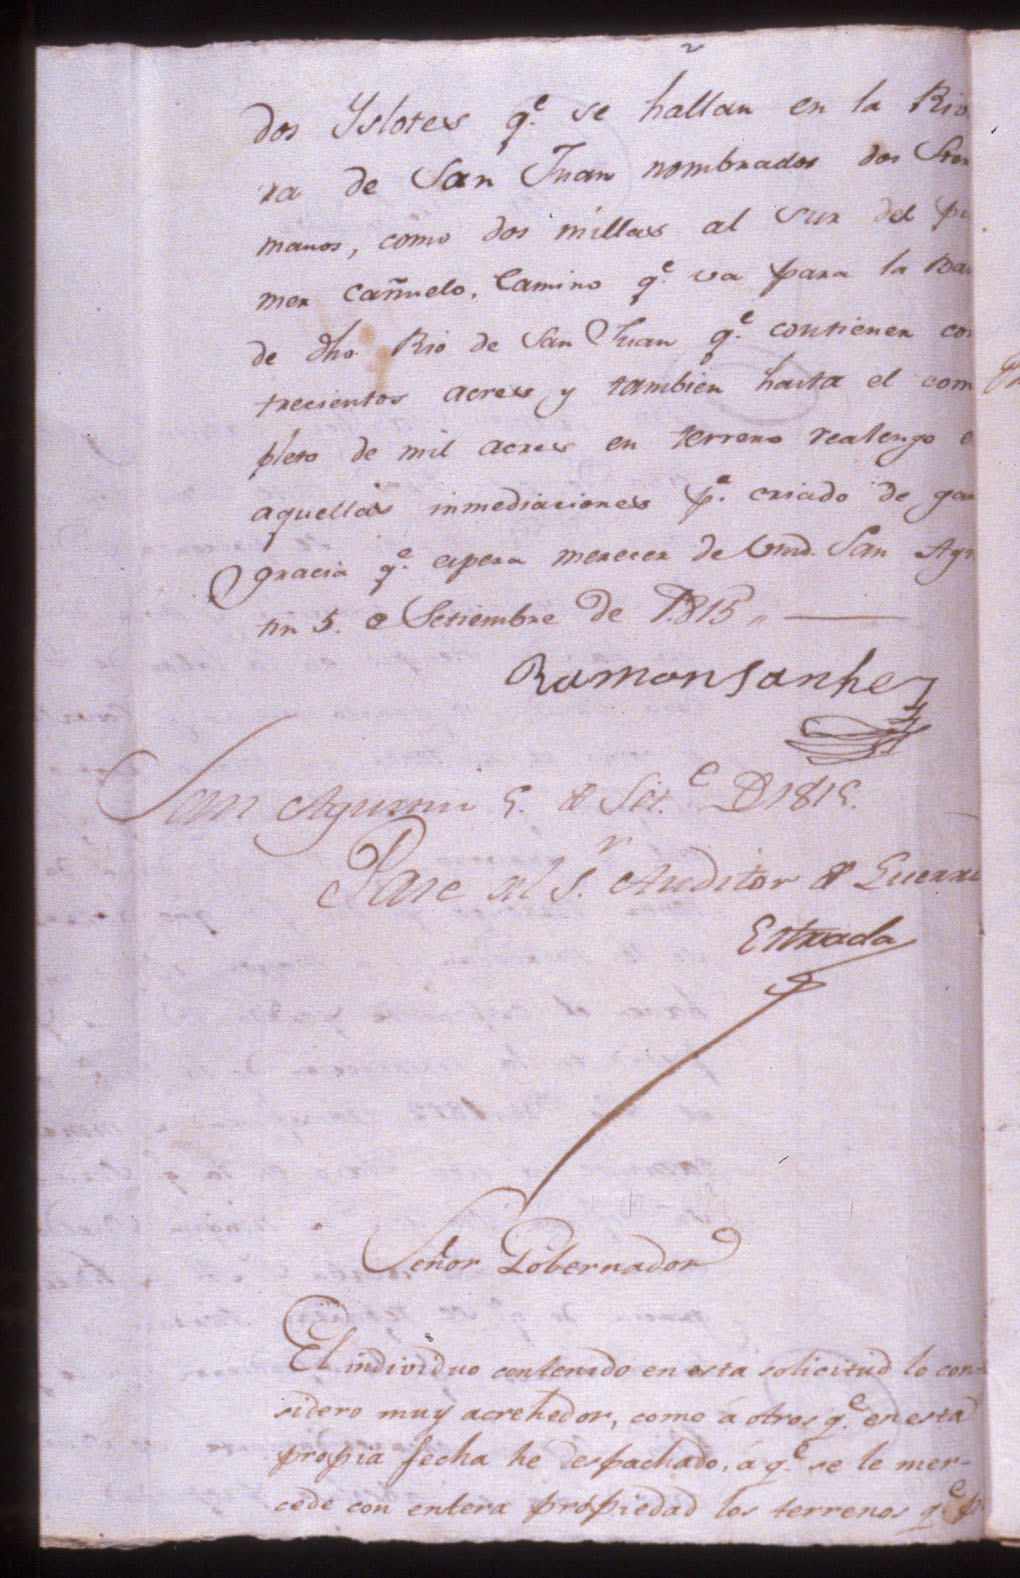 dos Yslotes q.e se hallan en la Rio
ra de San Juan nombrados dos
manos, como dos millas al sur del
mer cañuelo, Camino q.e va para la Bar
de dho. Rio de San Juan q.e contienen
trecientos acres y tambien hasta el com
pleto de mil acres en terreno realengo e
aquellas inmediaciones p.a criado de gan
gracia q.e espera merecer de Vmd. San Agu
tin 5. de Setiembre de 1815,, ——
Ramon Sanhez
San Agustin 5. de Set.e D 1815.
Pase al S.r Auditor de Guerra
Estrada
Señor Gobernador
El individuo contenido en esta solicitud lo con-
sidero muy acrehedor, como á otros q.e en esta
propia fecha he despachado, á q.e se le mer-
cede con entera propiedad los terrenos q.e p